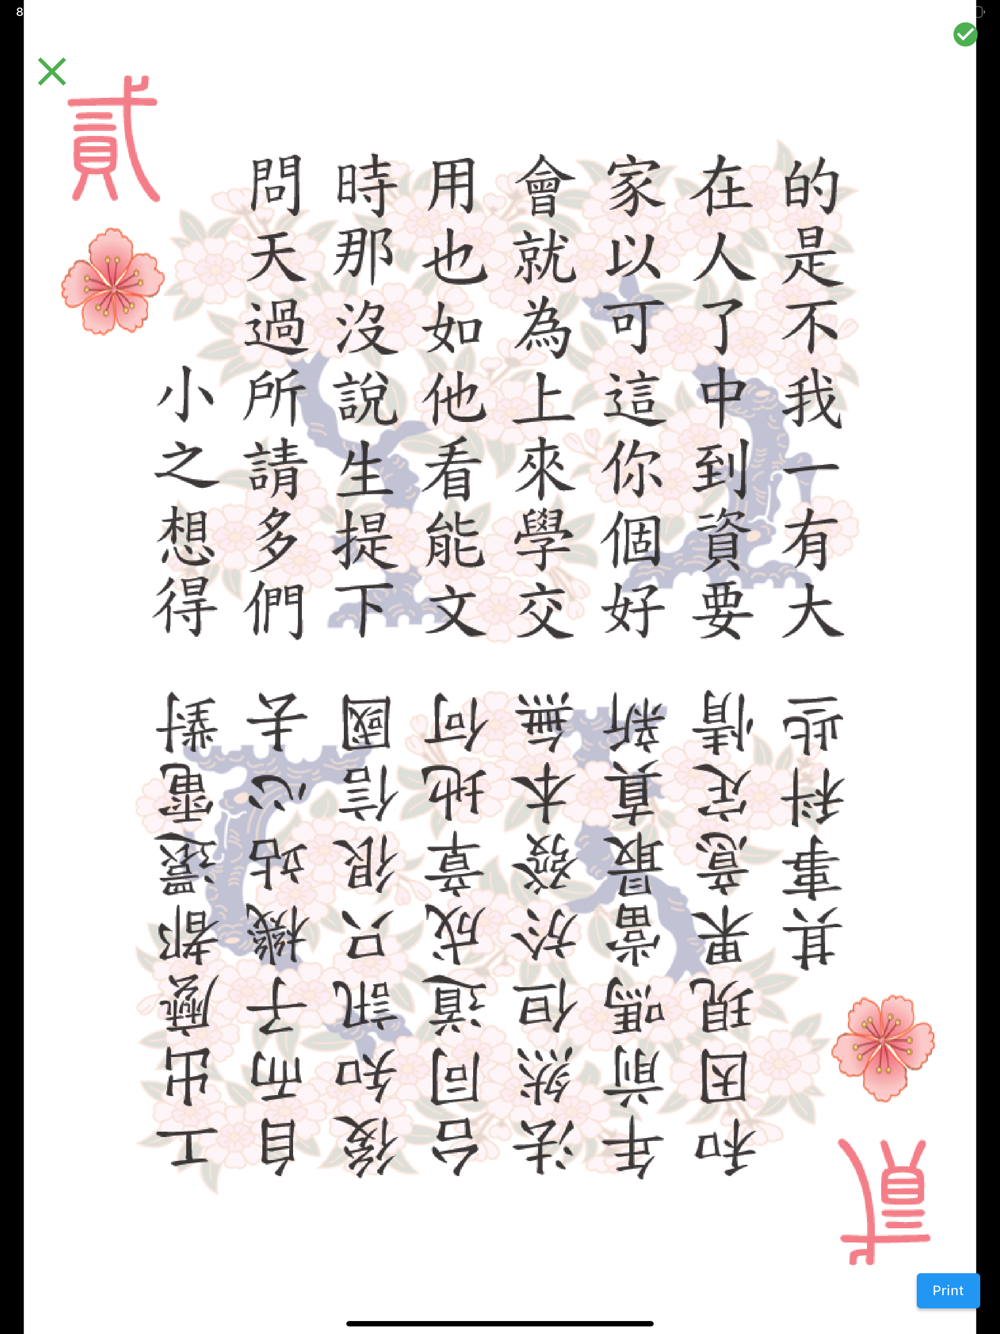 8
貳
的是不我一有大
在人了中到資要
家以可這你個好
會就為上來學交
用也如他看能文
時那沒說生提下
問天過所請多們
小之想得
貳
工出麼都還電對
自而子機站心去
後知訊只很信國
台同道成章地何
法然但於發本無
年前嗎當最真新
和因現果意定情
其事科些
Print